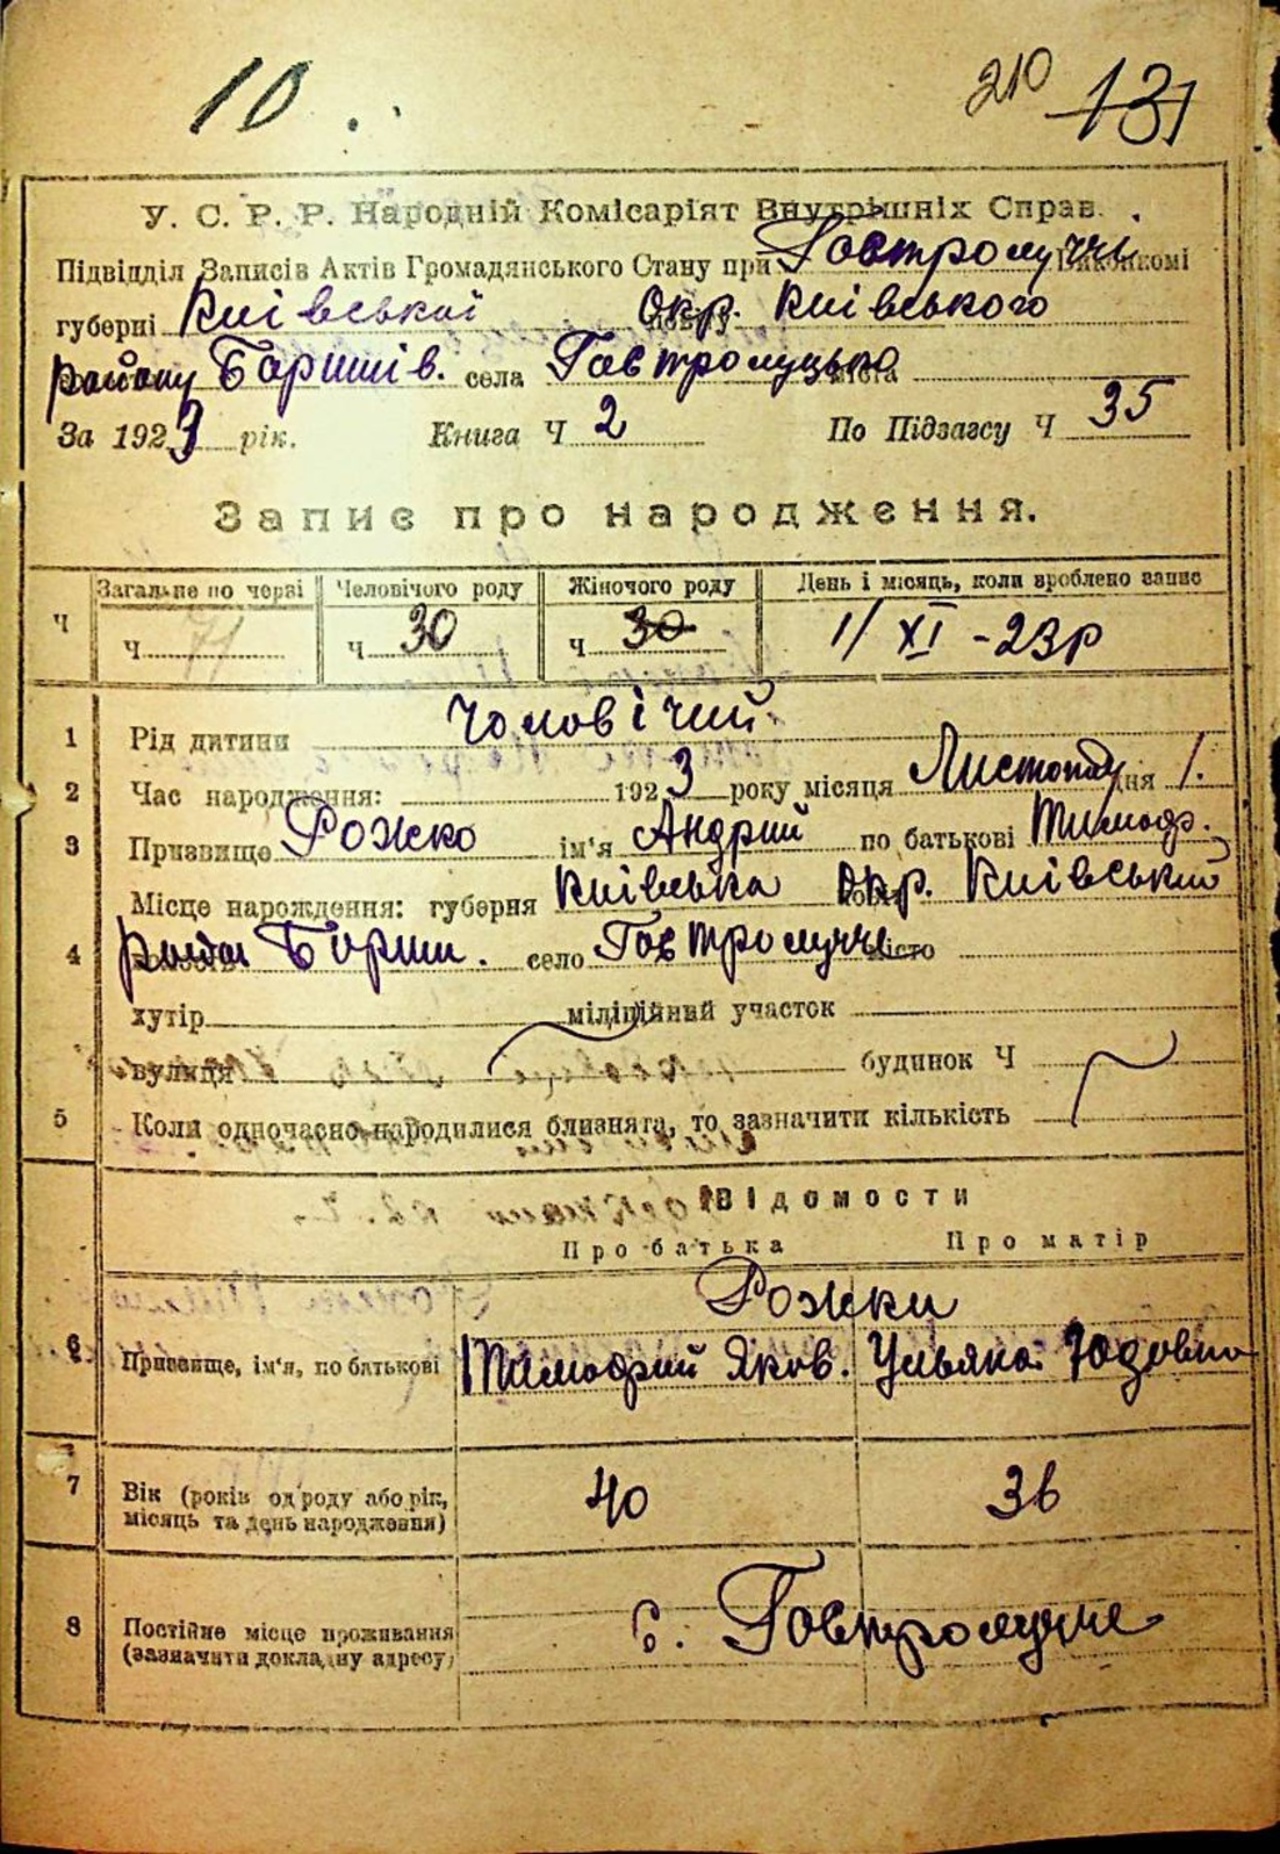 10.
210 131
У. С. Р. Р. Народній Комісаріят Внутрішніх Справ.
Підвідділ Записів Актів Громадянського Стану при Гостролуччі Виконкомі
губерні Київської Окр. Київського
району Баришів. села Гостролуцько міста
За 1923 рік. Книга Ч 2 По Підзагсу Ч 35
Запис про народження.
Загальне по черзі Человічого роду Жіночого роду День і місяць, коли зроблено запис
Ч Ч 71 Ч 30 Ч 30 1/XI-23р
1 Рід дитини Чоловічий
2 Час народження: 1923 року місяця Листопаду дня 1.
3 Призвище Рожко ім'я Андрий по батькові Тимоф.
Місце народження: губерня Київська Окр. Київський
4 район Бориш. село Гостролуччє місто
хутір міліційний участок
вулиця будинок Ч
5 Коли одночасно народилися близнята, то зазначити кількість
Відомости
Про батька Про матір
Рожки
6 Призвище, ім'я, по батькові Тимофий Яков. Ульяна Юдовна
7 Вік (років од роду або рік, 40 36
місяць та день народження)
8 Постійне місце проживання с. Гостролучче
(зазначити докладну адресу)